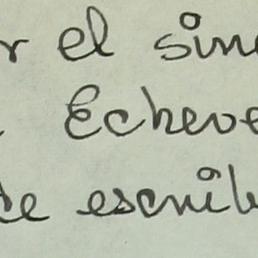 r el sin
Echeve
ce escrib